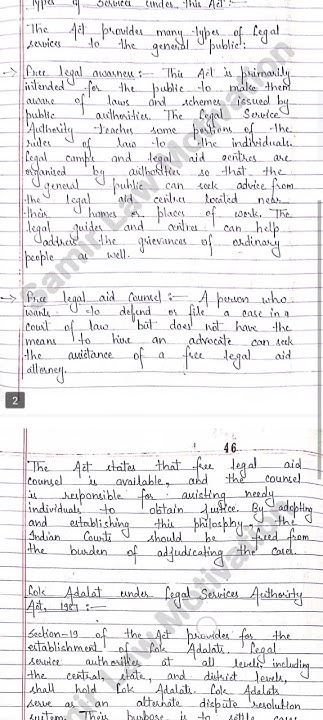 Types of Services under this Act :-
The Act provides many types of legal
services to the general public:
→ Free legal awarness :- This Act is primarily
intended for the public to make them
aware of laws and schemes issued by
public authorities. The Legal Service
Authority teaches some portions of the
rules of law to the individuals.
legal camps and legal aid centres are
organised by authorities so that the
general public can seek advice from
the legal aid centres located near
their homes or places of work. The
legal guides and centres can help
address the grievances of ordinary
people as well.
→ Free legal aid Counsel :- A person who
wants to defend or file a case in a
court of law but does not have the
means to hire an advocate can seek
the assistance of a free legal aid
attorney.
2
46
The Act states that free legal aid
counsel is available, and the counsel
is responsible for assisting needy
individuals to obtain Justice. By adopting
and establishing this philosphy, the
Indian Courts should be freed from
the burden of adjudicating the case.
Lok Adalat under Legal Services Authority
Act, 1987 :-
Section-19 of the Act provides for the
establishment of Lok Adalats. legal
service authorities at all levels including
the central, state, and district levels,
shall hold Lok Adalats. Lok Adalats
serve as an alternate dispute resolution
system. Their purpose is to settle cases
Samir Law Motivation
Samir Law Motivation